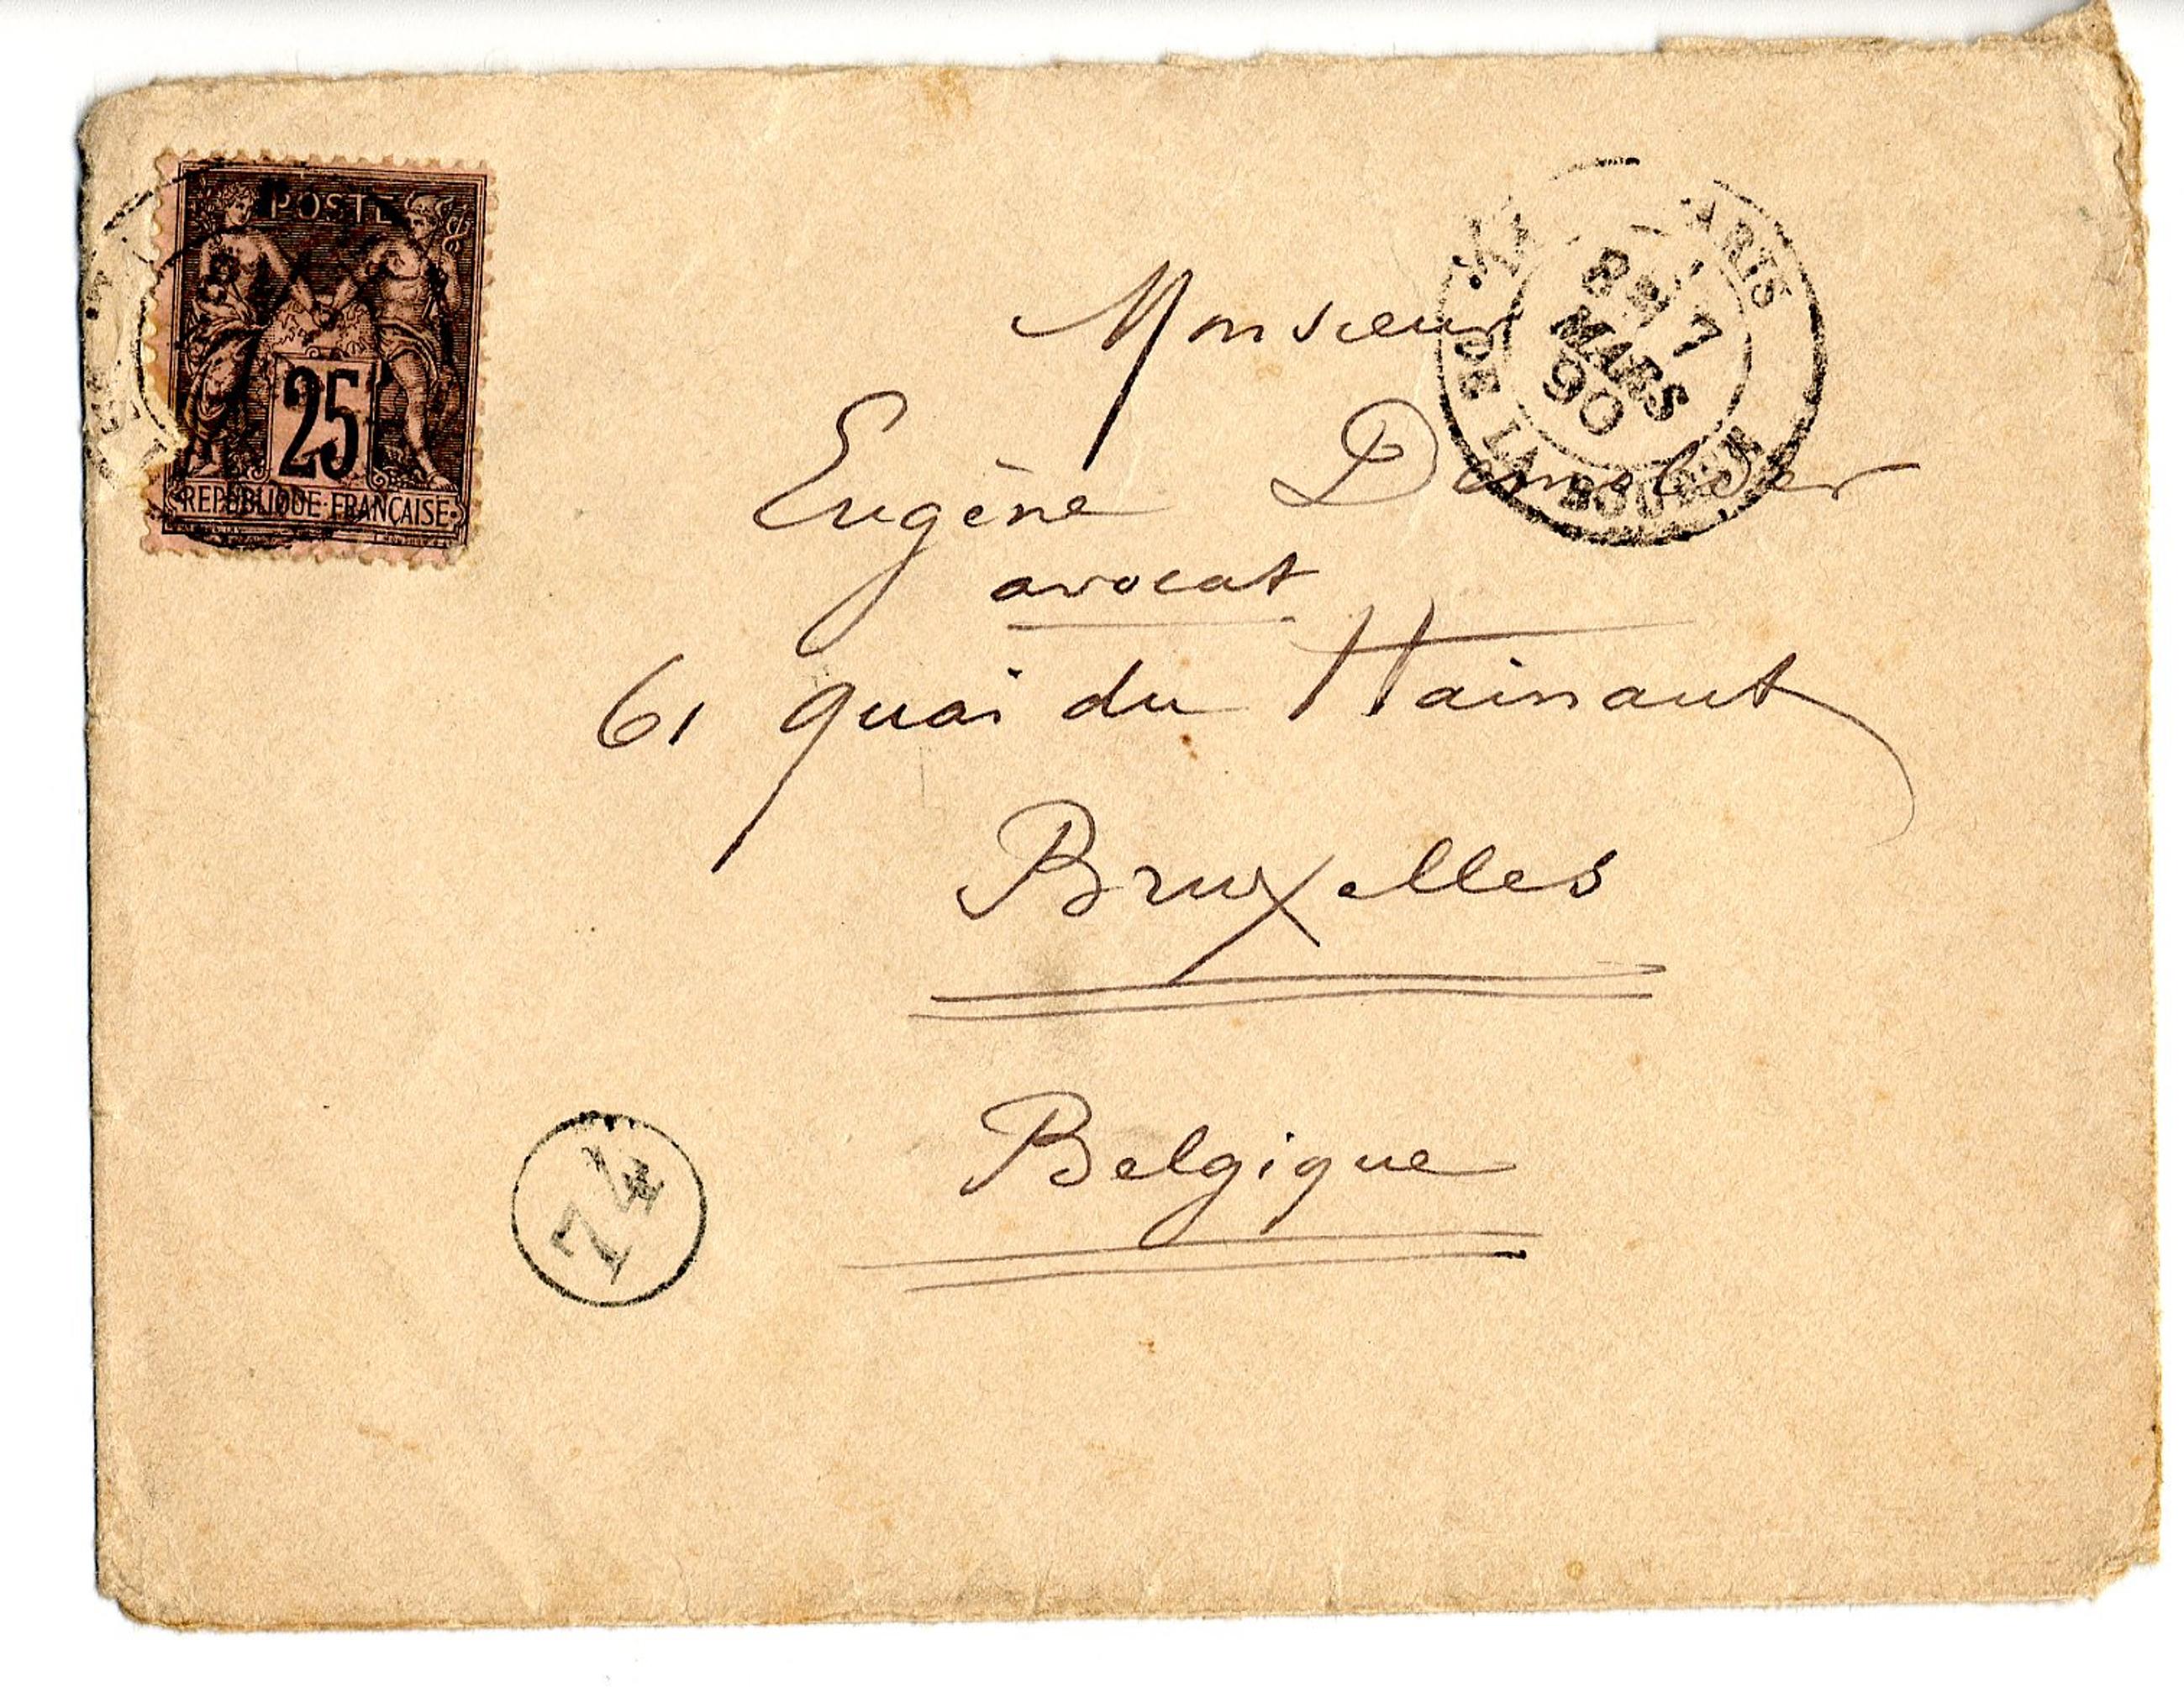 POSTE
25
REPUBLIQUE FRANÇAISE
PARIS
8E 7
MARS
90
DE LA BOURSE
Monsieur
Eugène Demolder
avocat
61 quai du Hainaut
Bruxelles
Belgique
74